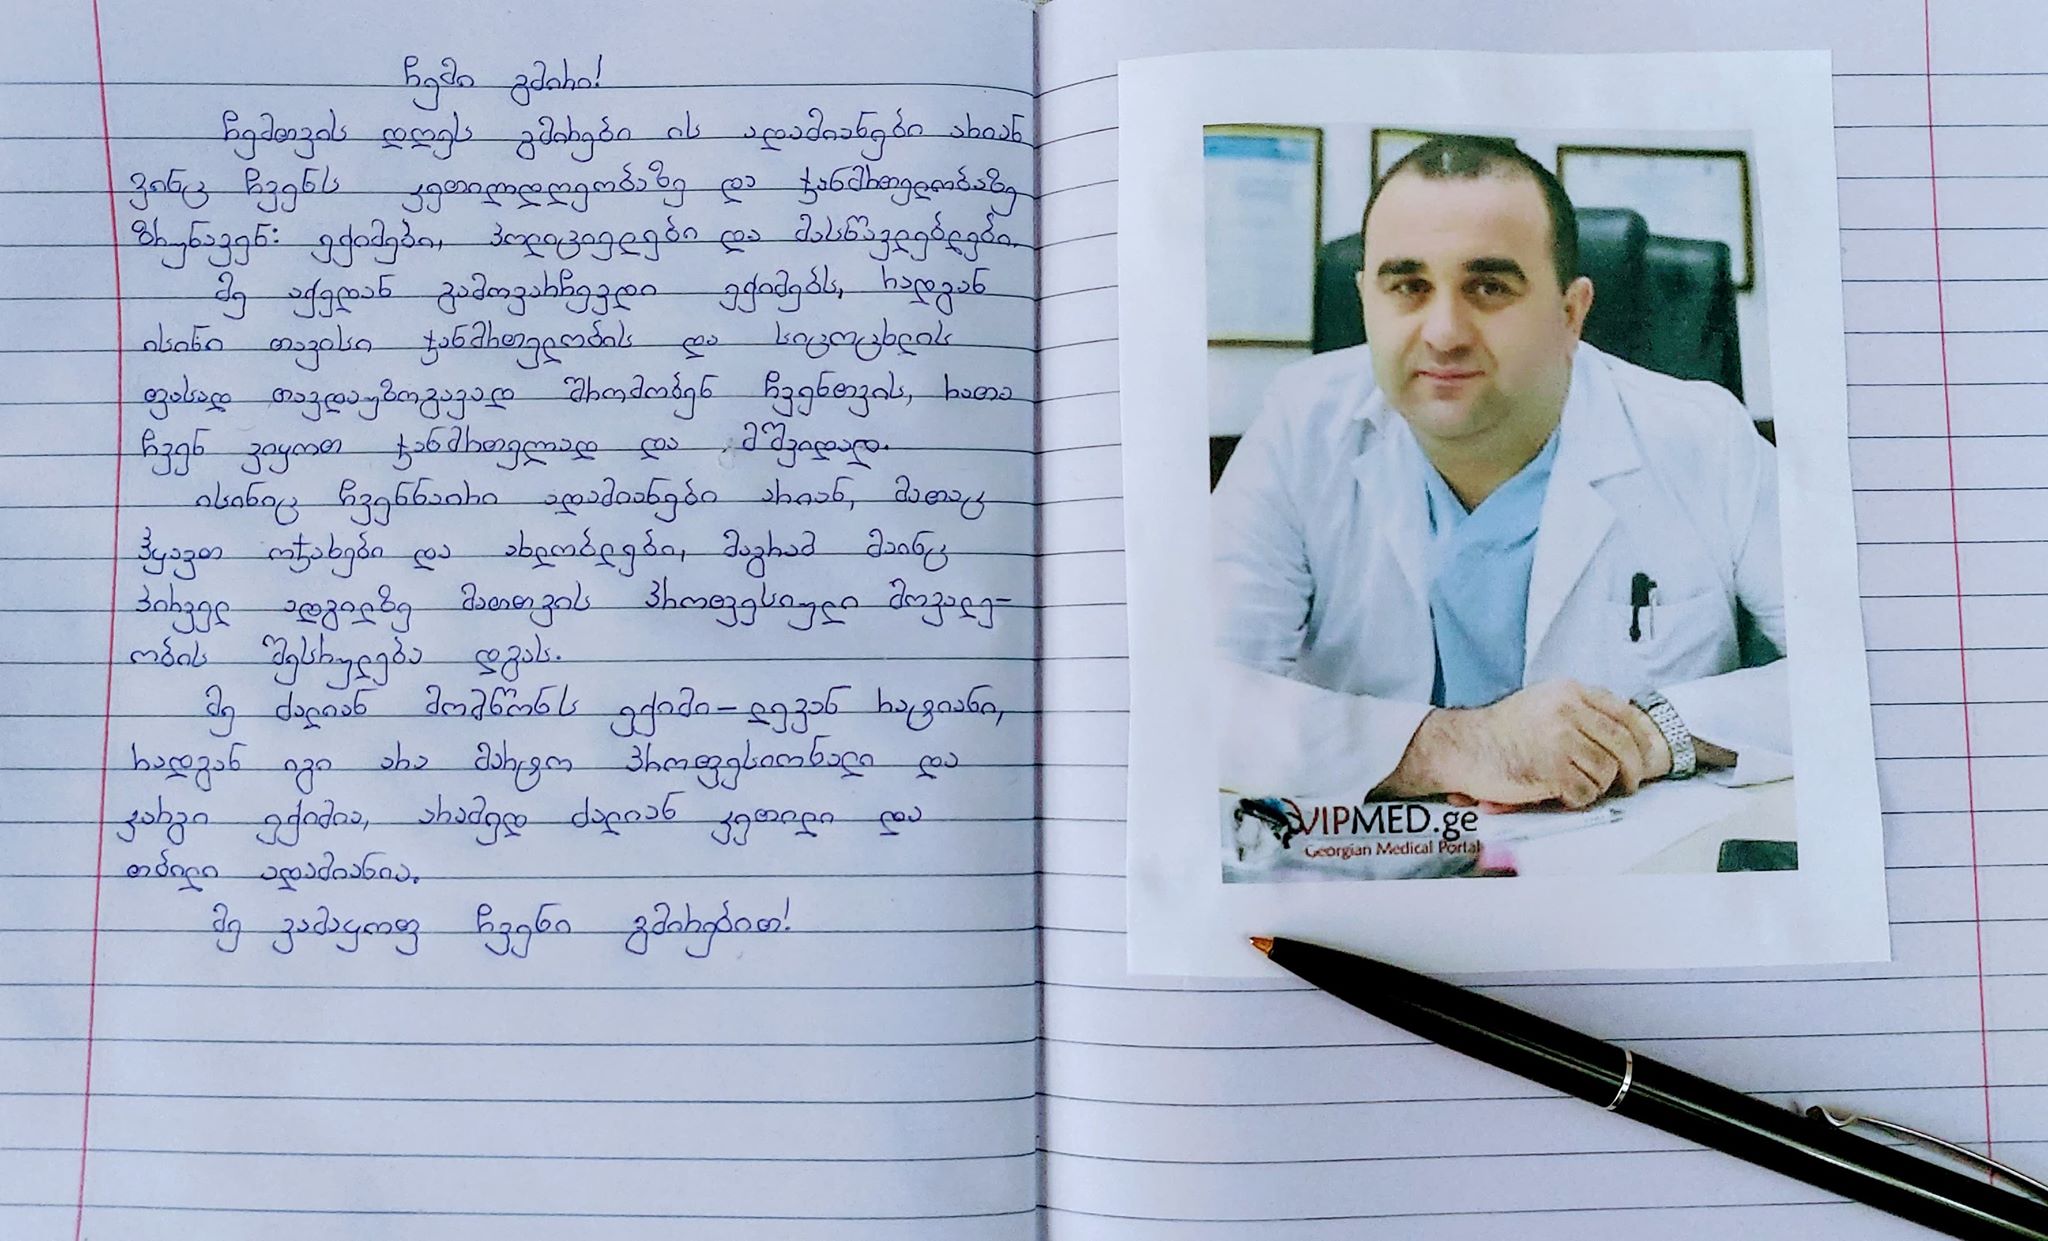 ჩემი გმირი!
ჩემთვის დღეს გმირები ის ადამიანები არიან
ვინც ჩვენს კეთილდღეობაზე და ჯანმრთელობაზე
ზრუნავენ: ექიმები, პოლიციელები და მასწავლებლები.
მე აქედან გამოვარჩევდი ექიმებს, რადგან
ისინი თავისი ჯანმრთელობის და სიცოცხლის
ფასად თავდაუზოგავად შრომობენ ჩვენთვის, რათა
ჩვენ ვიყოთ ჯანმრთელად და მშვიდად.
ისინიც ჩვენნაირი ადამიანები არიან, მათაც
ჰყავთ ოჯახები და ახლობლები, მაგრამ მაინც
პირველ ადგილზე მათთვის პროფესიული მოვალე-
ობის შესრულება დგას.
მე ძალიან მომწონს ექიმი-ლევან რატიანი,
რადგან იგი არა მარტო პროფესიონალი და
კარგი ექიმია, არამედ ძალიან კეთილი და
თბილი ადამიანია.
მე ვამაყობ ჩვენი გმირებით!
VIPMED.ge
Georgian Medical Portal